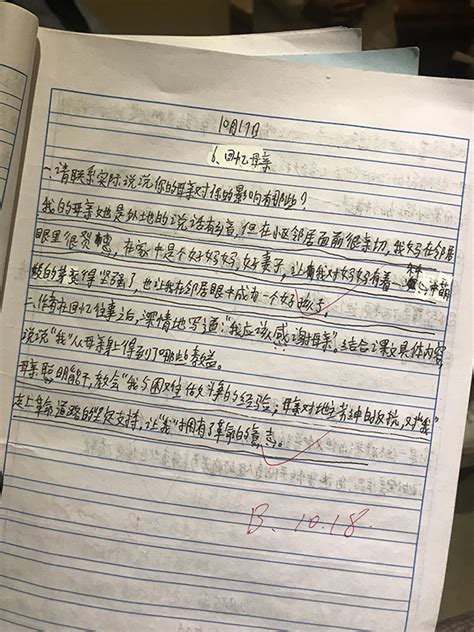 10月17日
6.回忆母亲
一、请联系实际,说说你的母亲对你的影响有哪些?
我的母亲她是外地的说话有口音,但在小区邻居面前很亲切,我妈在邻居
眼里很,在家中是个好妈妈,好妻子,让我对妈妈有着
的变得坚强了,也让我在邻居眼中成为一个好孩子。
二、作者在回忆往事之后,深情地写道:"我应该感谢母亲"。结合课文具体内容,
说说"我"从母亲身上得到了哪些教益。
母亲聪明能干,教会"我"与困难作斗争的经验;母亲对地主绅的反抗,对"我"
走上革命道路的坚定支持,让"我"拥有了革命的意志。
B. 10.18.